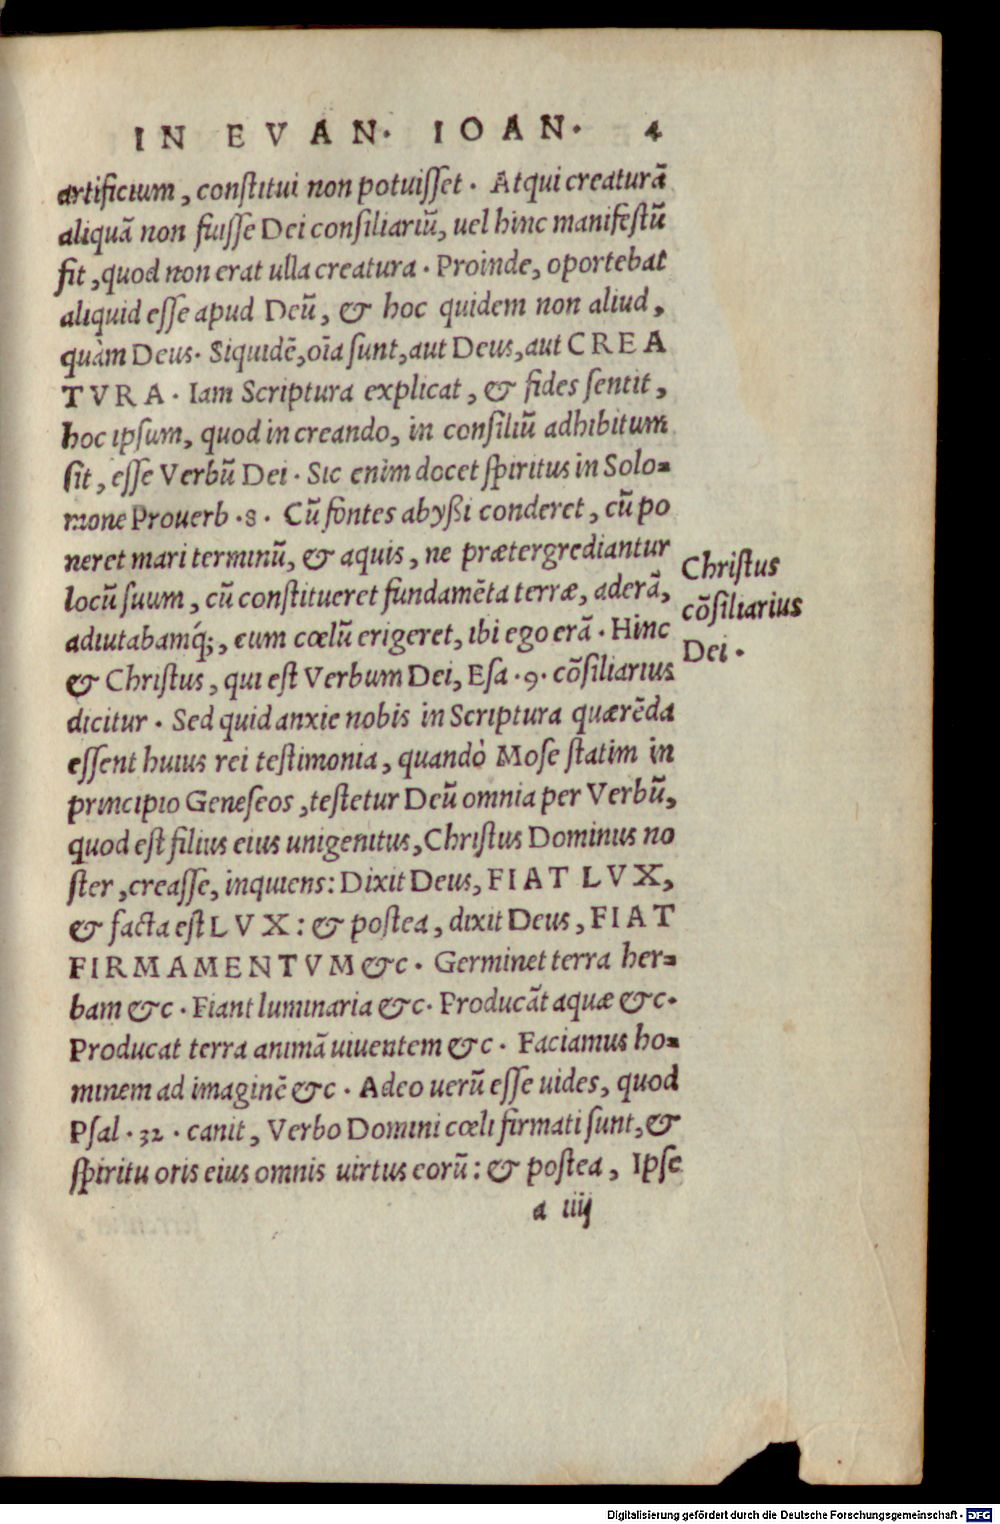 IN EVAN. IOAN. 4
artificium, conſtitui non potuiſſet. Atqui creaturā
aliquā non fuiſſe Dei conſiliariũ, uel hinc manifeſtũ
fit, quod non erat ulla creatura. Proinde, oportebat
aliquid eſſe apud Deũ, & hoc quidem non aliud,
quàm Deus. Siquidē, oīa ſunt, aut Deus, aut CREA
TVRA. Iam Scriptura explicat, & fides ſentit,
hoc ipſum, quod in creando, in conſiliũ adhibitum
ſit, eſſe Verbũ Dei. Sic enim docet ſpiritus in Solo-
mone Prouerb.8. Cũ fontes abyßi conderet, cũ po
neret mari terminũ, & aquis, ne prætergrediantur
locũ ſuum, cũ conſtitueret fundamēta terræ, aderā,
adiutabamq́;, cum cœlũ erigeret, ibi ego erā. Hinc
& Chriſtus, qui eſt Verbum Dei, Eſa.9. cōſiliarius
dicitur. Sed quid anxie nobis in Scriptura quærēda
eſſent huius rei teſtimonia, quandò Moſe ſtatim in
principio Geneſeos, teſtetur Deũ omnia per Verbũ,
quod eſt filius eius unigenitus, Chriſtus Dominus no
ſter, creaſſe, inquiens: Dixit Deus, FIAT LVX,
& facta eſt LVX: & poſtea, dixit Deus, FIAT
FIRMAMENTVM &c. Germinet terra her-
bam &c. Fiant luminaria &c. Producāt aquæ &c.
Producat terra animā uiuentem &c. Faciamus ho-
minem ad imaginē &c. Adeo uerũ eſſe uides, quod
Pſal.32. canit, Verbo Domini cœli firmati ſunt, &
ſpiritu oris eius omnis uirtus eorũ: & poſtea, Ipſe
a iiij
Chriſtus
cōſiliarius
Dei.
Digitalisierung gefördert durch die Deutsche Forschungsgemeinschaft - DFG